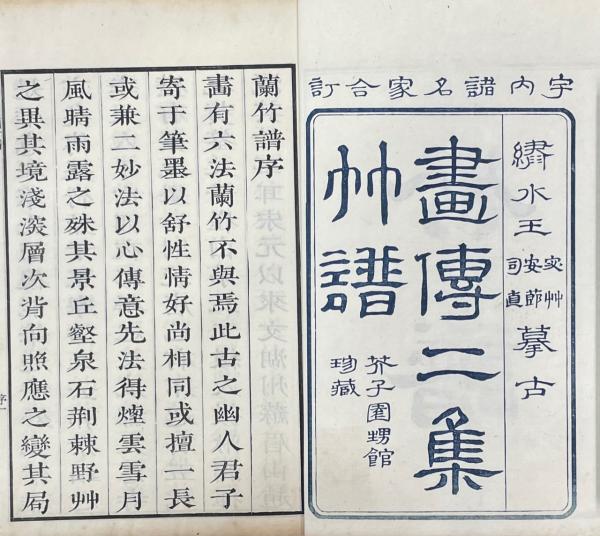 宇內諸名家合訂
繡水王宓艸安節司直摹古
畫傳二集
竹譜
芥子園甥館
珍藏
蘭竹譜序
畵有六法蘭竹不與焉此古之幽人君子
寄于筆墨以舒性情好尚相同或擅一長
或兼二妙法以心傳意先法得煙雲雪月
風晴雨露之殊其景丘壑泉石荆棘野艸
之異其境淺深層次背向照應之變其局
序一